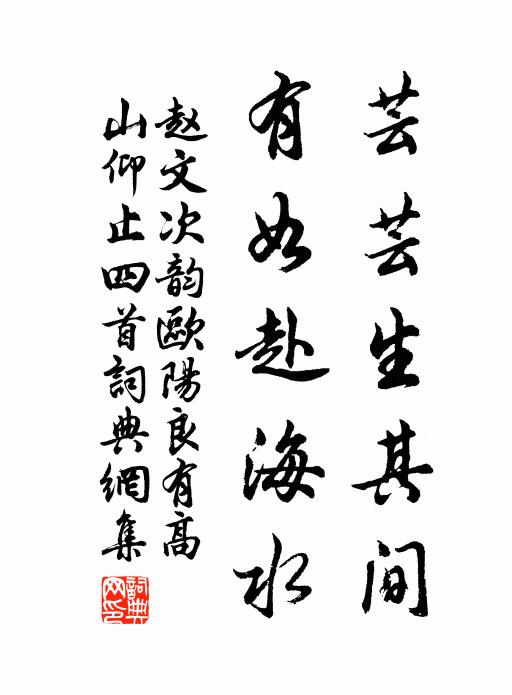 芸芸生其间
有如赴海水
赵文次韵歐陽良有高
山仰止四首詞典網集
詞典网印